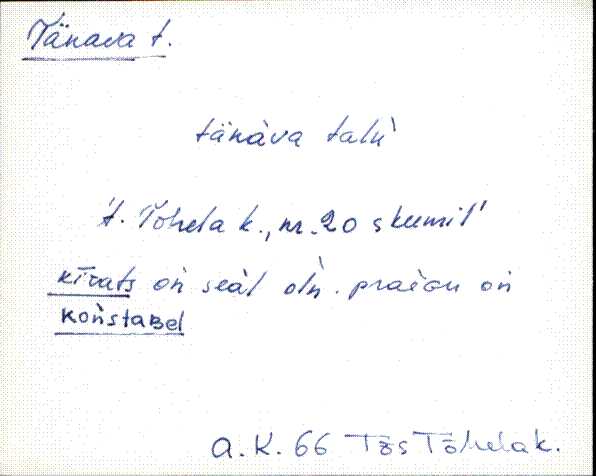 Tänava t.
tänàva talù
t. Tõhela k., nr. 20 skeemil
kīrats oǹ seàl olǹ. praèGu oǹ
koǹstaBel
A.K. 66 Tõs Tõhela k.